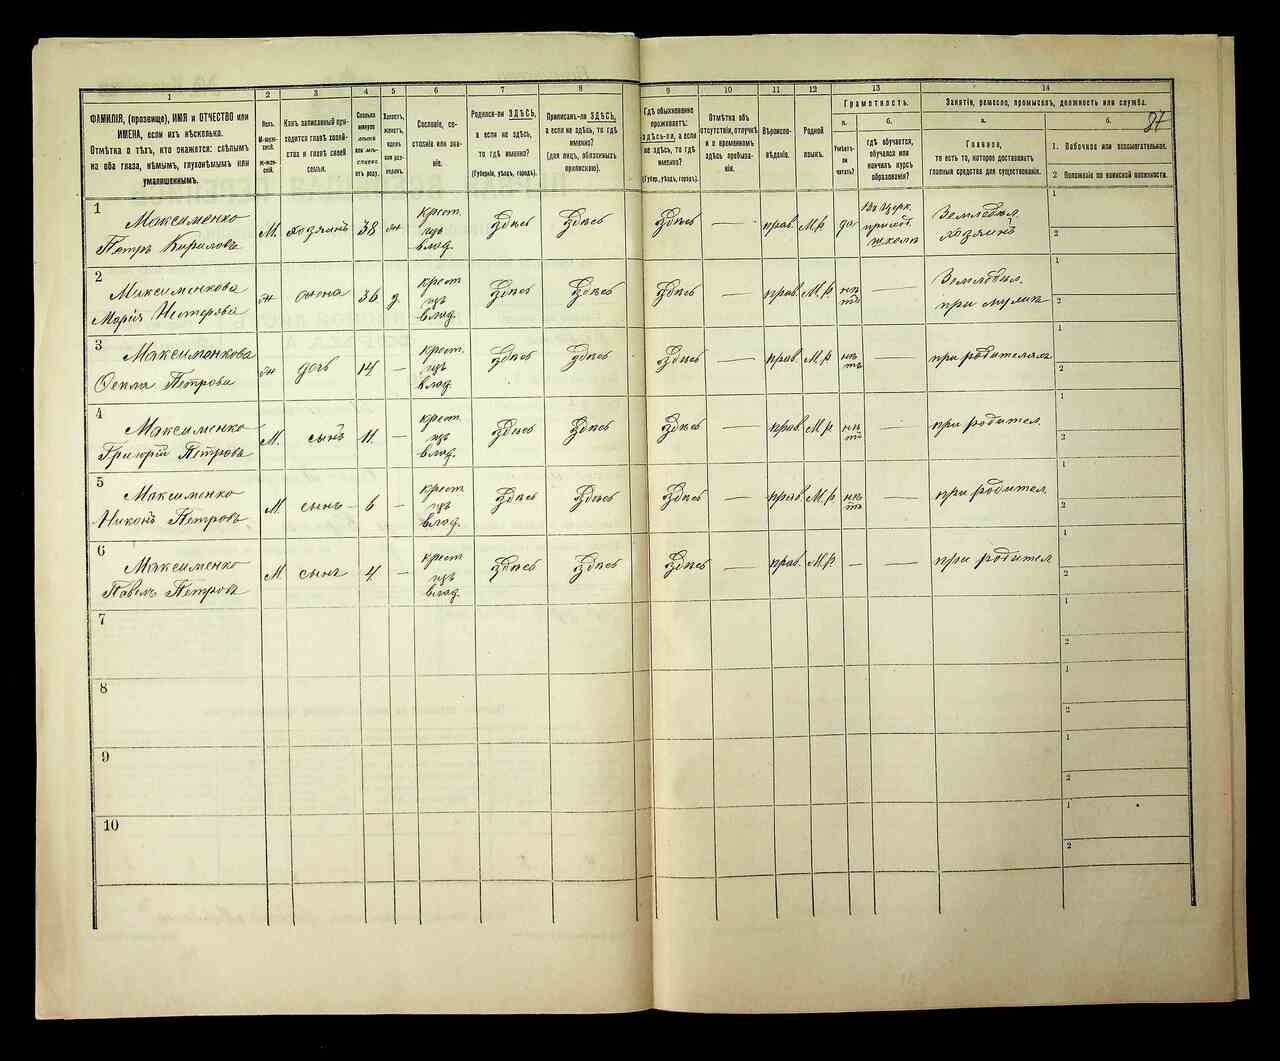 1
ФАМИЛІЯ, (прозвище), ИМЯ и ОТЧЕСТВО или
ИМЕНА, если ихъ нѣсколько.
Отмѣтка о тѣхъ, кто окажется: слѣпымъ
на оба глаза, нѣмымъ, глухонѣмымъ или
умалишеннымъ.
2
Полъ.
М-мужской.
Ж-женскій.
3
Какъ записанный приходится главѣ хозяйства и главѣ своей
семьи.
4
Сколько
минуло
лѣтъ
или мѣсяцевъ
отъ роду.
5
Холостъ,
женатъ,
вдовъ
или разведенъ.
6
Сословіе, состояніе или званіе.
7
Родился-ли ЗДѢСЬ,
а если не здѣсь,
то гдѣ именно?
(Губернія, уѣздъ, городъ).
8
Приписанъ-ли ЗДѢСЬ,
а если не здѣсь, то гдѣ
именно?
(для лицъ, обязанныхъ
припискою).
9
Гдѣ обыкновенно
проживаетъ:
здѣсь-ли, а если
не здѣсь, то гдѣ
именно?
(Губер., уѣздъ, городъ).
10
Отмѣтка объ
отсутствіи, отлучкѣ
и о временномъ
здѣсь пребываніи.
11
Вѣроисповѣданіе.
12
Родной
языкъ.
13
Грамотность.
а.
Умѣетъ-ли
читать?
б.
гдѣ обучается,
обучался или
кончилъ курсъ
образованія?
14
Занятіе, ремесло, промыселъ, должность или служба.
а.
Главное,
то есть то, которое доставляетъ
главныя средства для существованія.
б.
1. Побочное или вспомогательное.
2 Положеніе по воинской повинности.
1
Максименко
Петръ Кириловъ
М.
хозяинъ
38
ж
крест.
изъ
влад.
Здѣсь
Здѣсь
Здѣсь
—
прав.
М.р
да
Въ церк.
приход.
школѣ
Земледѣл.
хозяинъ
1
2
2
Максименкова
Марія Нестерова
ж
жена
36
з
крест
изъ
влад.
Здѣсь
Здѣсь
Здѣсь
—
прав.
М.р.
нѣтъ
—
Земледѣл.
при мужѣ
1
2
3
Максименкова
Ѳекла Петрова
ж
дочь
14
—
крест.
изъ
влад.
Здѣсь
Здѣсь
Здѣсь
—
прав.
М.р.
нѣтъ
—
при родителяхъ
1
2
4
Максименко
Григорій Петровъ
М.
сынъ
11
—
крест.
изъ
влад.
Здѣсь
Здѣсь
Здѣсь
—
прав
М.р
нѣтъ
—
при родител.
1
2
5
Максименко
Никонъ Петровъ
М
сынъ
6
—
крест
изъ
влад.
Здѣсь
Здѣсь
Здѣсь
—
прав.
М.р
нѣтъ
—
при родител.
1
2
6
Максименко
Павелъ Петровъ
М.
сынъ
4
—
крест
изъ
влад.
Здѣсь
Здѣсь
Здѣсь
—
прав.
М.р.
—
—
при родител
1
2
7
1
2
8
1
2
9
1
2
10
1
2